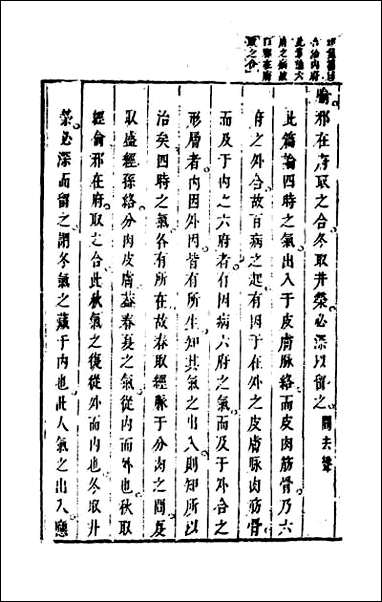 合治內府
此篇論六
府之病故
曰邪在府
取之合
腧邪在府取之合冬取井滎必深以留之 間去聲
此篇論四時之氣出入于皮膚脉絡而皮肉筋骨乃六
府之外合故有病之起有因于在外之皮膚脉肉筋骨
而及于內之六府者有因病六府之氣而及于外合之
形層者內因外因皆有所生知其氣之出入則知所以
治矣四時之氣各有所在故春取經脉于分肉之間夏
取盛經孫絡分肉皮膚蓋春夏之氣從內而外也秋取
經俞邪在府取之合此秋氣之復從外而內也冬取井
滎必深而留之謂冬氣之藏于內也此人氣之出入應